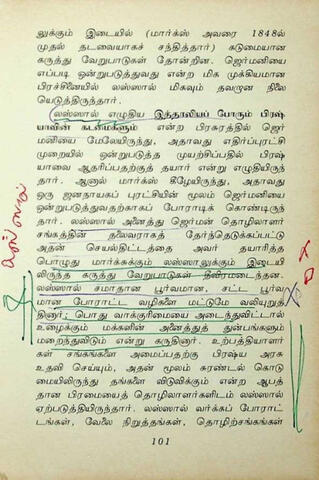 லுக்கும் இடையில் (மார்க்ஸ் அவரை 1848ல்
முதல் தடவையாகச் சந்தித்தார்) கடுமையான
கருத்து வேறுபாடுகள் தோன்றின. ஜெர்மனியை
எப்படி ஒன்றுபடுத்துவது என்ற மிக முக்கியமான
பிரச்சினையில் லஸ்ஸால் மிகவும் தவறான நிலை
யெடுத்திருந்தார்.
லஸ்ஸால் எழுதிய இத்தாலியப் போரும் பிரஷ்
யாவின் கடமைகளும் என்ற பிரசுரத்தில் ஜெர்
மனியை மேலேயிருந்து, அதாவது எதிர்ப்புரட்சி
முறையில் ஒன்றுபடுத்த முயற்சிப்பதில் பிரஷ்
யாவை ஆதரிப்பதற்குத் தயார் என்று எழுதியிருந்
தார். ஆனால் மார்க்ஸ் கீழேயிருந்து, அதாவது
ஒரு ஜனநாயகப் புரட்சியின் மூலம் ஜெர்மனியை
ஒன்றுபடுத்துவதற்காகப் போராடிக் கொண்டிருந்
தார். லஸ்ஸால் அனைத்து ஜெர்மன் தொழிலாளர்
சங்கத்தின் தலைவராகத் தேர்ந்தெடுக்கப்பட்டு
அதன் செயல்திட்டத்தை அவர் தயாரித்த
பொழுது மார்க்சுக்கும் லஸ்ஸாலுக்கும் இடையி
லிருந்த கருத்து வேறுபாடுகள் தீவிரமடைந்தன.
லஸ்ஸால் சமாதான பூர்வமான, சட்ட பூர்வ
மான போராட்ட வழிகளை மட்டுமே வலியுறுத்
தினார்; பொது வாக்குரிமையை அடைந்துவிட்டால்
உழைக்கும் மக்களின் அனைத்துத் துன்பங்களும்
மறைந்துவிடும் என்று கருதினார். உற்பத்தியாளர்
கள் சங்கங்களை அமைப்பதற்கு பிரஷ்ய அரசு
உதவி செய்யும், அதன் மூலம் சுரண்டல் கொடு
மையிலிருந்து தங்களை விடுவிக்கும் என்ற ஆபத்
தான பிரமையைத் தொழிலாளர்களிடம் லஸ்ஸால்
ஏற்படுத்தியிருந்தார். லஸ்ஸால் வர்க்கப் போராட்
டங்கள், வேலை நிறுத்தங்கள், தொழிற்சங்கங்கள்
101